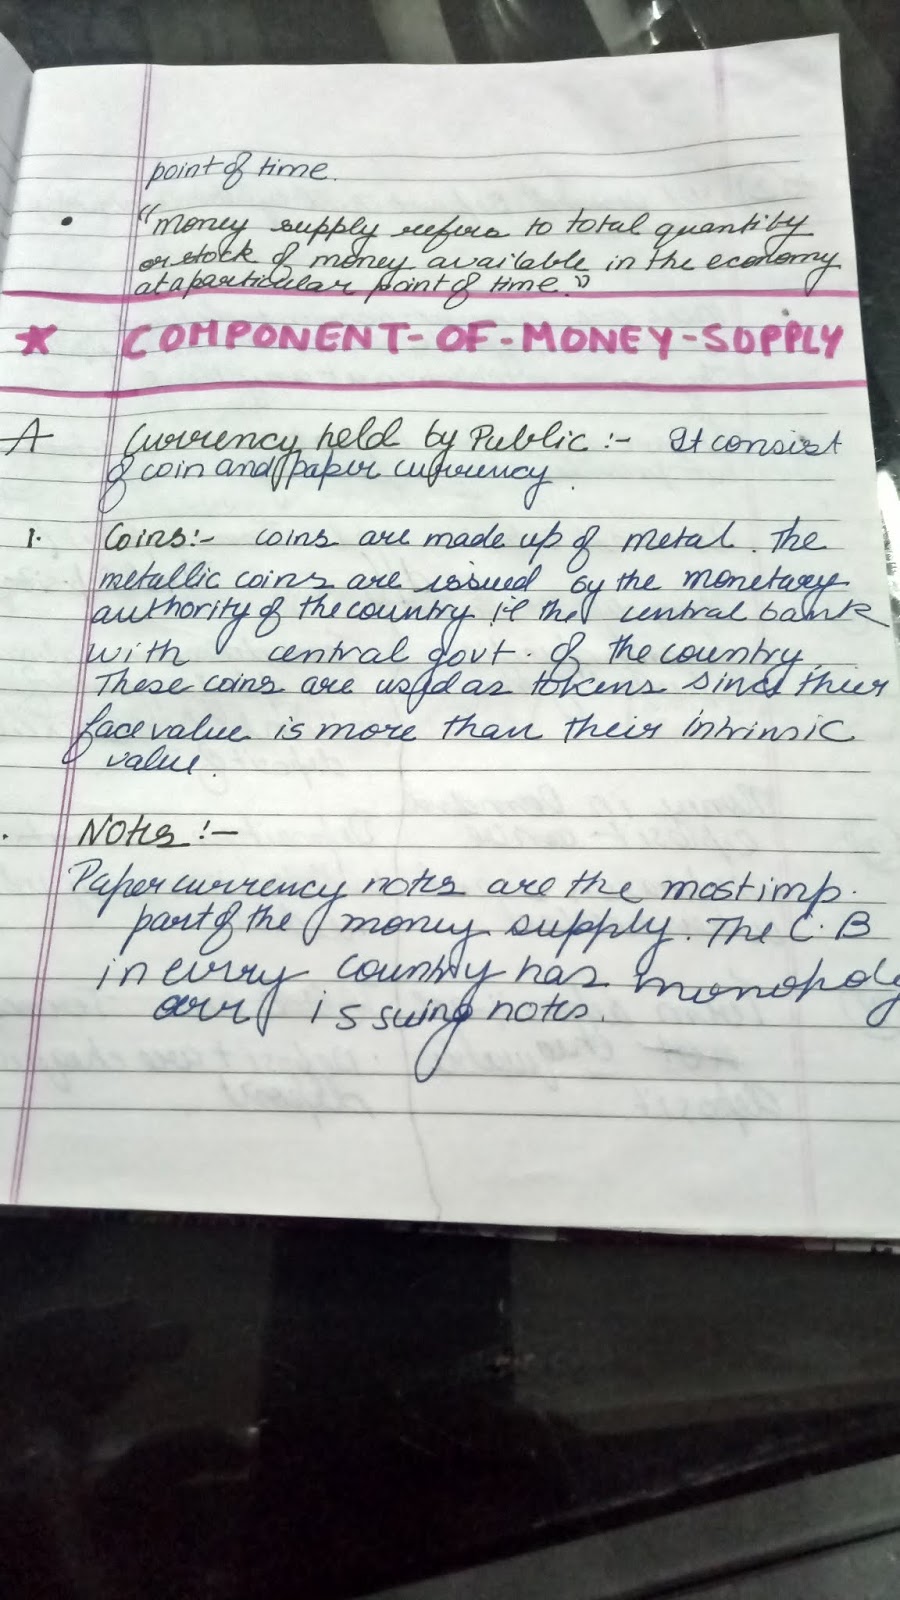 point of time.
• "Money supply refers to total quantity
or stock of money available in the economy
at a particular point of time."
* COMPONENT-OF-MONEY-SUPPLY
A Currency held by Public :- It consist
of coin and paper currency.
1. Coins:- coins are made up of metal. The
metallic coins are issued by the monetary
authority of the country i.e the central bank
with central govt. of the country.
These coins are used as tokens since their
face value is more than their intrinsic
value.
. Notes :-
Paper currency notes are the most imp.
part of the money supply. The C.B
in every country has monopoly
over issuing notes.